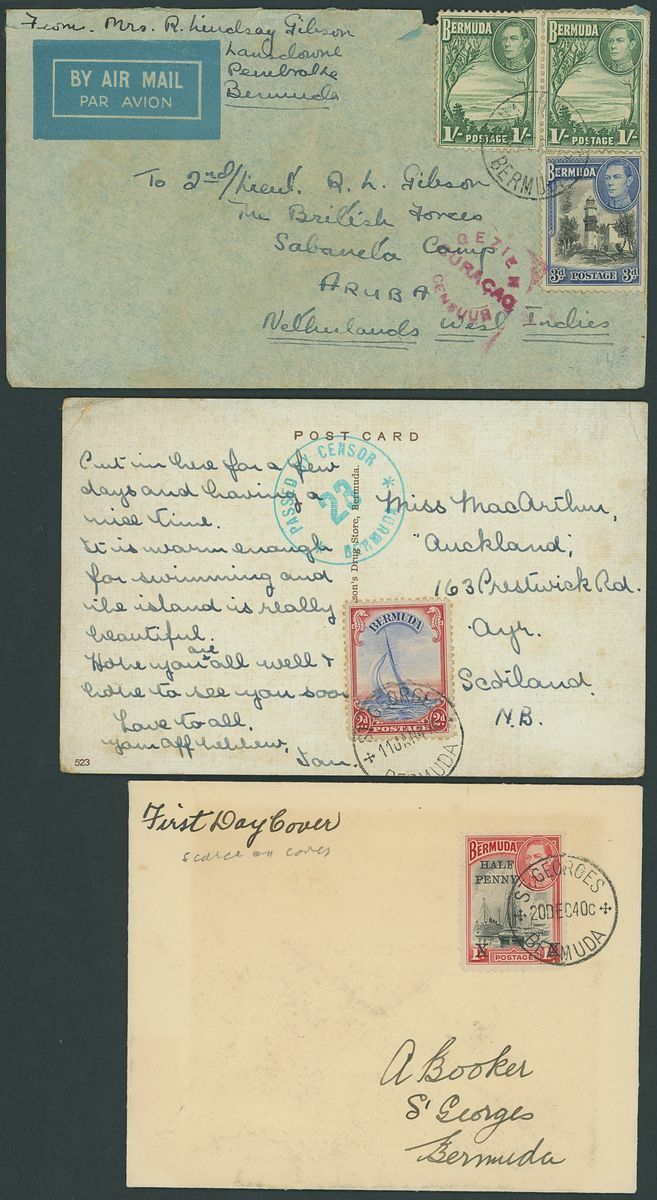 From. Mrs. R. Lindsay Gibson
Lansdowne
Pembroke
Bermuda
BY AIR MAIL
PAR AVION
BERMUDA
1/- POSTAGE 1/-
BERMUDA
1/- POSTAGE 1/-
BERMUDA
BERMUDA
3d POSTAGE 3d
To 2nd/Lieut. R. L. Gibson
The British Forces
Sabaneta Camp
ARUBA
Netherlands West Indies
GEZIEN
CURAÇAO
CENSUUR
POST CARD
PASSED BY CENSOR
23
BERMUDA
son's Drug Store, Bermuda.
Put in here for a few
days and having a
nice time.
It is warm enough
for swimming and
the island is really
beautiful.
Hope you are all well &
hope to see you soon
Love to all.
Your aff nephew,
Ian.
523
Miss MacArthur,
"Auckland,"
163 Prestwick Rd.
Ayr.
Scotland.
N.B.
BERMUDA
2d POSTAGE 2d
ST GEORGES
11 JAN
BERMUDA
First Day Cover
scarce on cover
BERMUDA
HALF
PENNY
X X
POSTAGE
ST GEORGES
20 DEC 40 C
BERMUDA
A Booker
St Georges
Bermuda